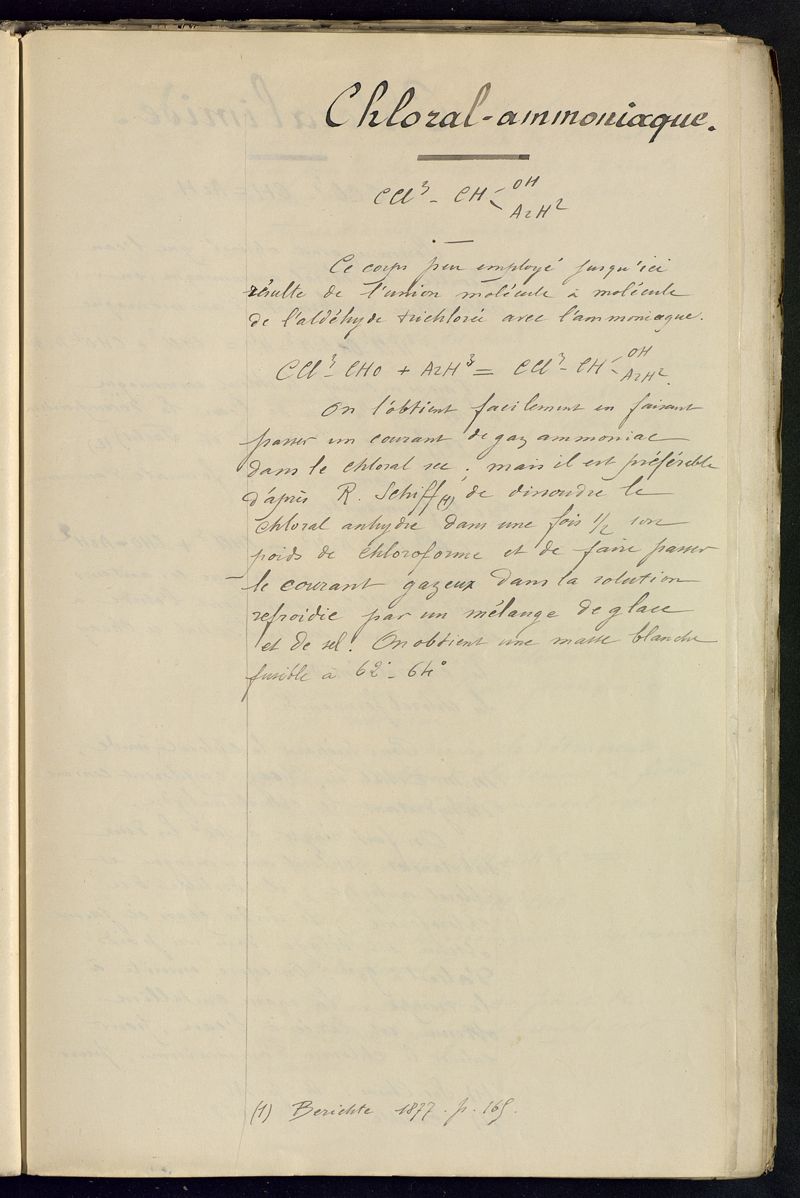 Chloral-ammoniaque.
CCl³ - CH < OH
AzH²
Ce corps peu employé jusqu'ici
résulte de l'union molécule à molécule
de l'aldéhyde trichlorée avec l'ammoniaque.
CCl³ - CHO + AzH³ = CCl³ - CH < OH
AzH².
On l'obtient facilement en faisant
passer un courant de gaz ammoniac
dans le chloral sec ; mais il est préférable
d'après R. Schiff (1) de dissoudre le
chloral anhydre dans une fois 1/2 son
poids de chloroforme et de faire passer
le courant gazeux dans la solution
refroidie par un mélange de glace
et de sel. On obtient une masse blanche
fusible à 62° - 64°
(1) Berichte 1877. p. 165.